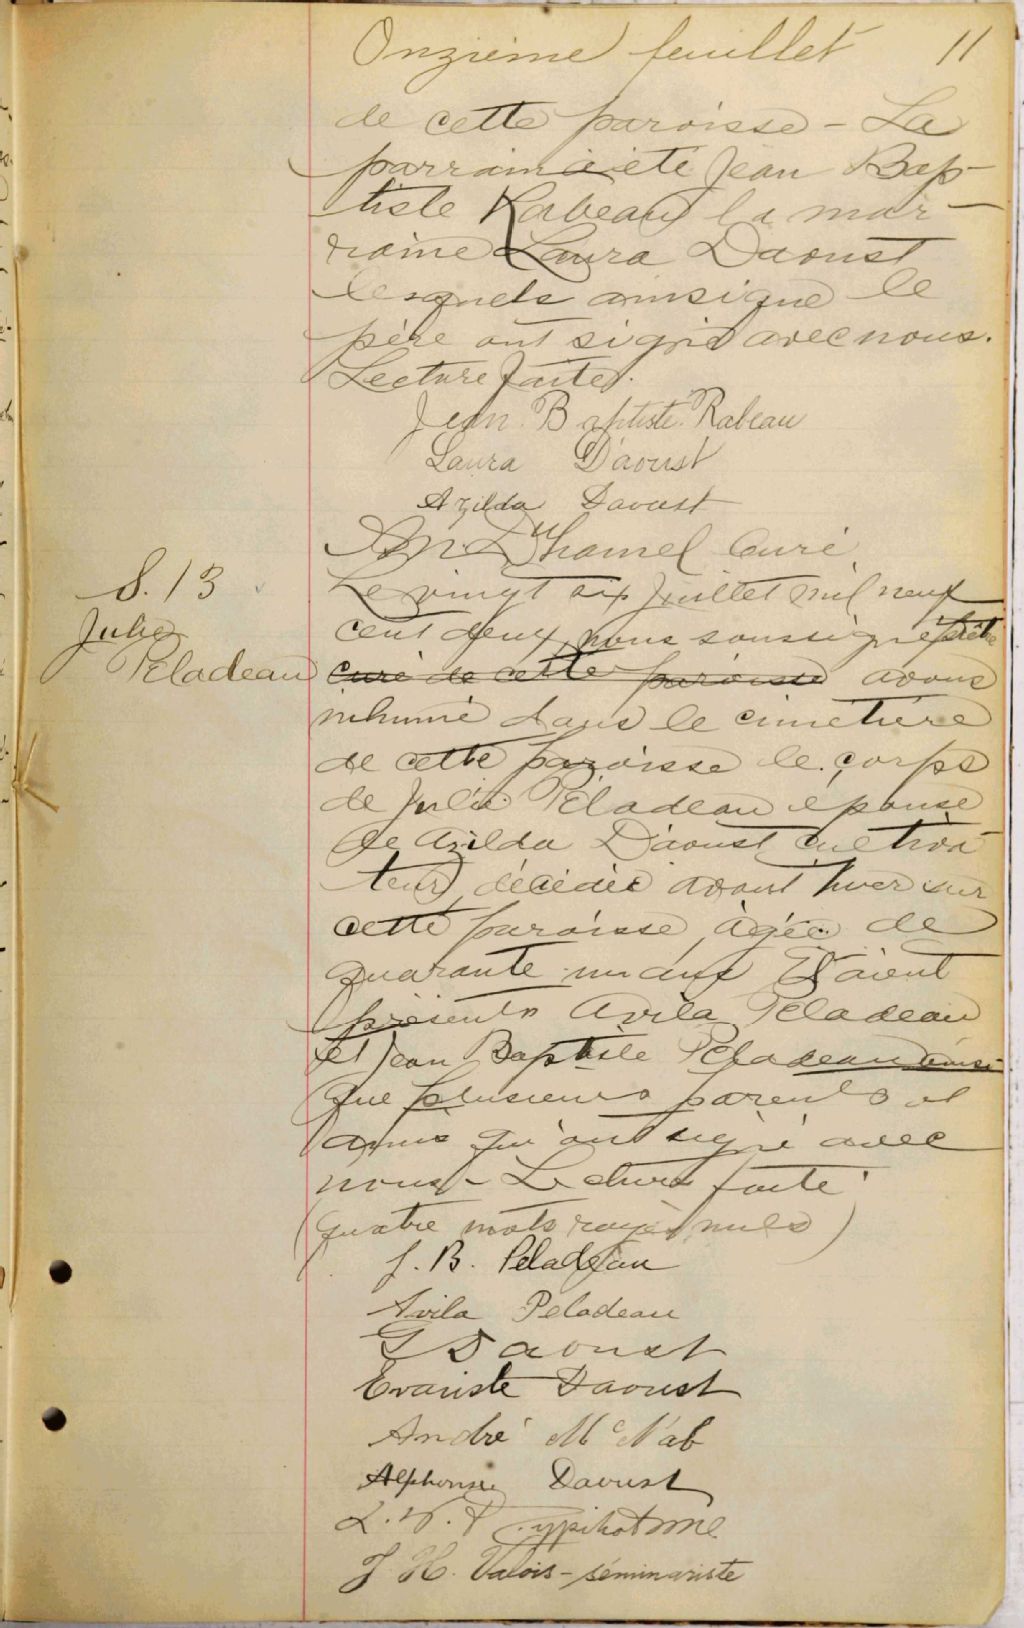 Onzième feuillet 11
de cette paroisse - La
parrain a été Jean Bap-
tiste Rabeau la mar-
raine Laura Daoust
lesquels ainsi que le
père ont signé avec nous.
Lecture faite.
Jean Baptiste Rabeau
Laura Daoust
Azilda Daoust
Duhamel Curé
S. 13
Julie
Peladeau
Le vingt six Juillet mil neuf
cent deux nous soussigné prêtre
curé de cette paroisse avons
inhumé dans le cimetière
de cette paroisse le corps
de Julie Péladeau épouse
de Azilda Daoust cultiva
teur, décédée avant hier sur
cette paroisse, âgée de
quarante un ans Etaient
présents Avila Peladeau
et Jean Baptiste Peladeau ainsi
que plusieurs parents et
amis qui ont signé avec
nous - Lecture faite
(quatre mots rayés nuls)
J. B. Peladeau
Avila Peladeau
G Daoust
Evariste Daoust
André McNab
Alphonse Daoust
J. H. Valois - séminariste